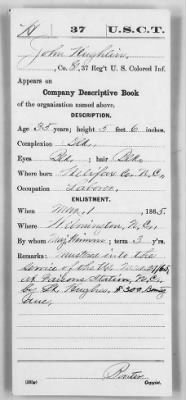 H 37 U.S.C.T.
John Hughlin
, Co. , 37 Reg't U. S. Colored Inf.
Appears on
Company Descriptive Book
of the organization named above.
DESCRIPTION.
Age 35 years; height 5 feet 6 inches.
Complexion Blk.
Eyes Blk.; hair Blk.
Where born Halifax Co. N.C.
Occupation Laborer
ENLISTMENT.
When Mar. 1, 1865.
Where Wilmington, N.C.
By whom ; term 3 y'rs.
Remarks: mustered into the
service of the U.S.
at Faisons Station, N.C.
by Lt. Hughes. $300 Bounty
due.
Copyist.